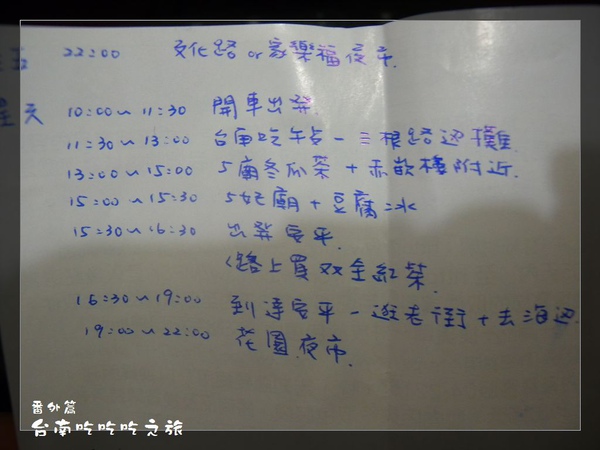 五 22:00 文化路 or 家樂福夜市.
星天
10:00~11:30 開車出発.
11:30~13:00 台南吃午占-三根路边攤.
13:00~15:00 5廟冬瓜茶+赤崁樓附近.
15:00~15:30 5妃廟+豆腐冰
15:30~16:30 出発安平.
<路上買双全紅茶.
16:30~19:00 到達安平-逛老街+去海边.
19:00~22:00 花園夜市.
番外篇
台南吃吃吃之旅